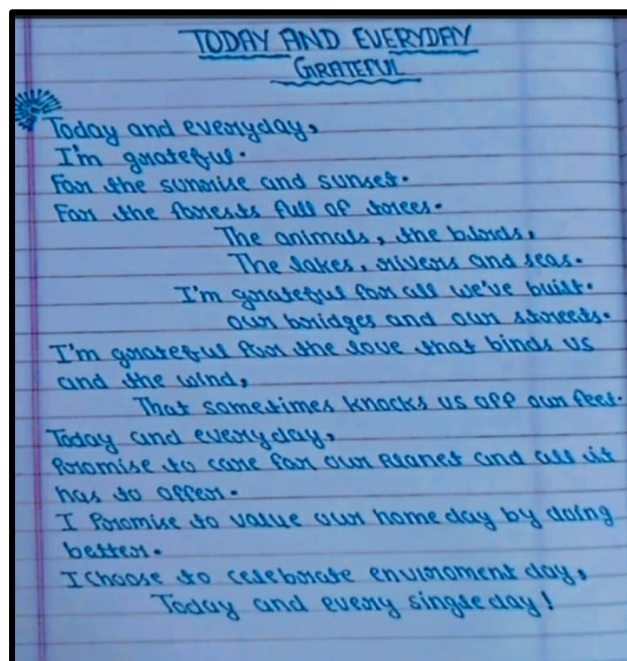 TODAY AND EVERYDAY
GRATEFUL
Today and everyday,
I'm grateful.
For the sunrise and sunset.
For the forests full of trees.
The animals, the birds,
The lakes, rivers and seas.
I'm grateful for all we've built.
our bridges and our streets.
I'm grateful for the love that binds us
and the wind,
That sometimes knocks us off our feet.
Today and everyday,
Promise to care for our Planet and all it
has to offer.
I Promise to value our home day by doing
better.
I Choose to celebrate enviroment day,
Today and every single day!